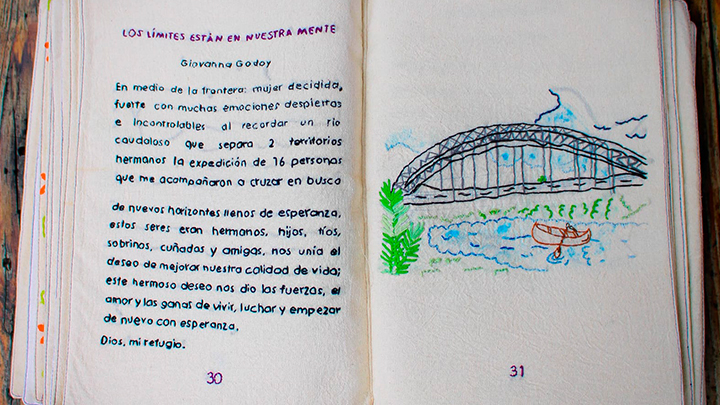 LOS LÍMITES ESTÁN EN NUESTRA MENTE
Giovanna Godoy
En medio de la frontera: mujer decidida,
fuerte con muchas emociones despiertas
e incontrolables al recordar un río
caudaloso que separa 2 territorios
hermanos la expedición de 16 personas
que me acompañaron a cruzar en busca
de nuevos horizontes llenos de esperanza,
estos seres eran hermanos, hijos, tíos,
sobrinos, cuñadas y amigas, nos unía el
deseo de mejorar nuestra calidad de vida;
este hermoso deseo nos dio las fuerzas, el
amor y las ganas de vivir, luchar y empezar
de nuevo con esperanza.
Dios, mi refugio.
30
31